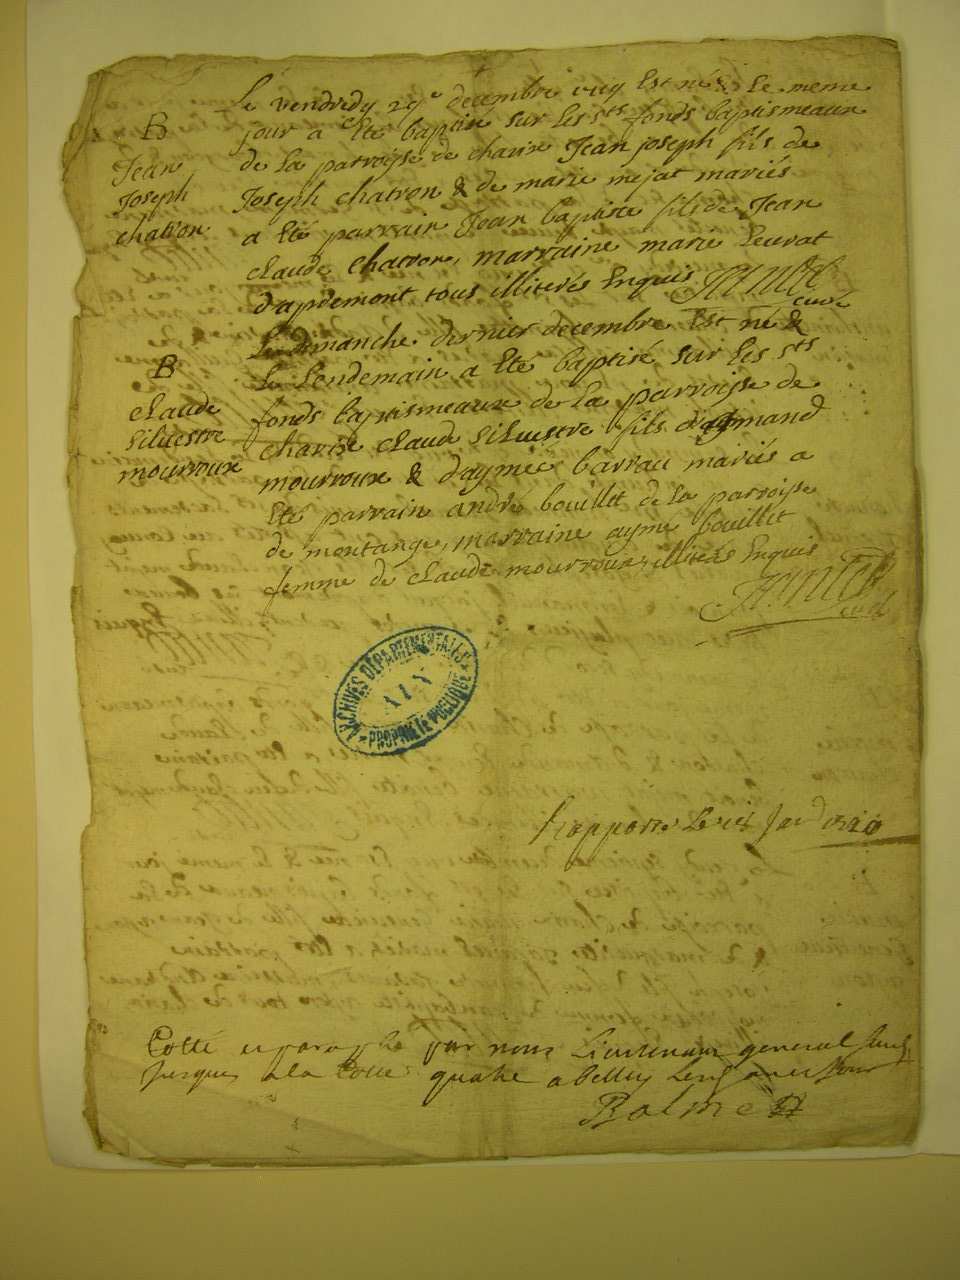 B
Jean
Joseph
chatron
Le vendredy 29e decembre est né & le meme
jour a eté baptisé sur les sts fonds baptismeaux
de la parroisse de Jean joseph fils de
Joseph chatron & de marie mejat mariés
a eté parrain Jean baptiste fils de Jean
claude chatron, marraine marie
d'apremont tous illiterés Enquis
curé
B
claude
silvestre
mourroux
Le dimanche dernier decembre Est né &
le Lendemain a eté baptisé sur les sts
fonds baptismeaux de la parroisse de
claude silvestre fils
mourroux & d'aymée barrau mariés a
Eté parrain andré bouillet de la parroisse
de montange, marraine ayme bouillet
femme de claude mourroux illiterés Enquis
curé
ARCHIVES DÉPARTEMENTALES
AIN
PROPRIÉTÉ PUBLIQUE
Rapporté
Cotté et paraphé par nous Lieutenant general
Jusques a la Cotte quatre a Belley
Balme